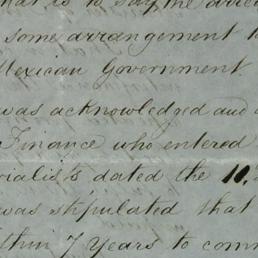 that is to say the
some arrangement
Mexican Government.
was acknowledged and
Finance who entered
dated the 10.
was stipulated that
7 Years to